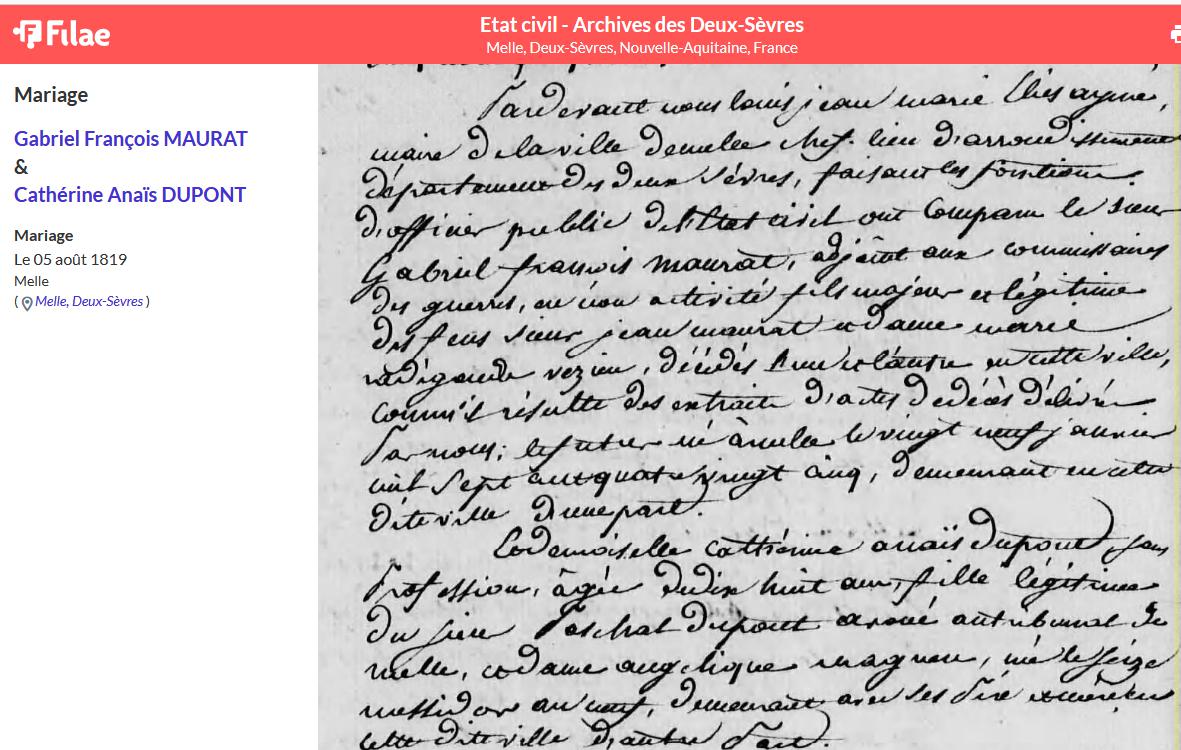 Filae
Etat civil - Archives des Deux-Sèvres
Melle, Deux-Sèvres, Nouvelle-Aquitaine, France
Mariage
Gabriel François MAURAT
&
Cathérine Anaïs DUPONT
Mariage
Le 05 août 1819
Melle
( Melle, Deux-Sèvres )
Pardevant nous louis jean marie
maire de la ville de melle chef. lieu d'arrondissement
département des deux sévres, faisant les fonctions
d'officier public de l'état civil ont comparu le sieur
Gabriel françois maurat, adjoint aux commissaires
des guerres, en non activité fils majeur et légitime
des feus sieur jean maurat et dame marie
radégonde vezien, décédés l'un et l'autre en cette ville,
comm'il résulte des extraits d'actes de décès délivrés
par nous; le futur né à melle le vingt neuf janvier
mil sept cent quatre vingt cinq, demeurant en cette
dite ville d'une part.
Et demoiselle cathérine anaïs dupont sans
profession, âgée de dix huit ans, fille légitime
du sieur Paschal dupont avoué au tribunal de
melle, et dame angélique magneu, née le seize
messidor an neuf, demeurant avec ses père et mère en
cette dite ville d'autre part.